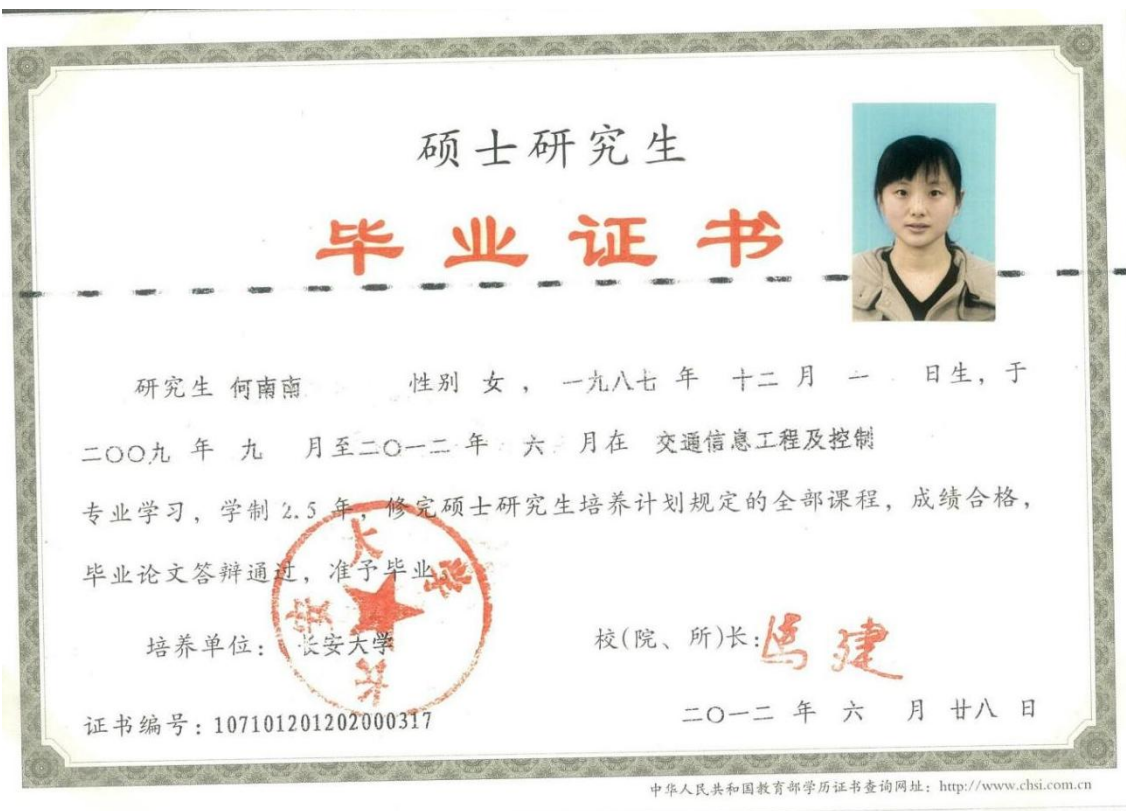 硕士研究生
毕业证书
研究生 何南南 性别 女 ， 一九八七 年 十二 月 一 日生，于
二〇〇九 年 九 月至二〇一二 年 六 月在 交通信息工程及控制
专业学习，学制 2.5 年，修完硕士研究生培养计划规定的全部课程，成绩合格，
毕业论文答辩通过，准予毕业。
培养单位： 长安大学
校(院、所)长：马建
长安大学
证书编号：107101201202000317
二〇一二 年 六 月 廿八 日
中华人民共和国教育部学历证书查询网址：http://www.chsi.com.cn